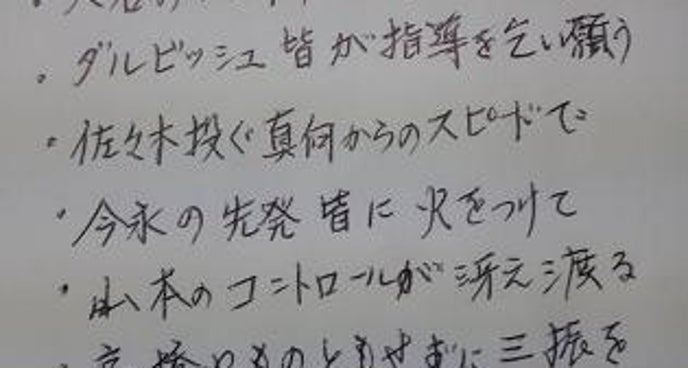 ・ダルビッシュ 皆が指導を乞い願う
・佐々木投ぐ真向からのスピードで
・今永の先発 皆に火をつけて
・山本のコントロールが冴え渡る
ものともせずに三振を